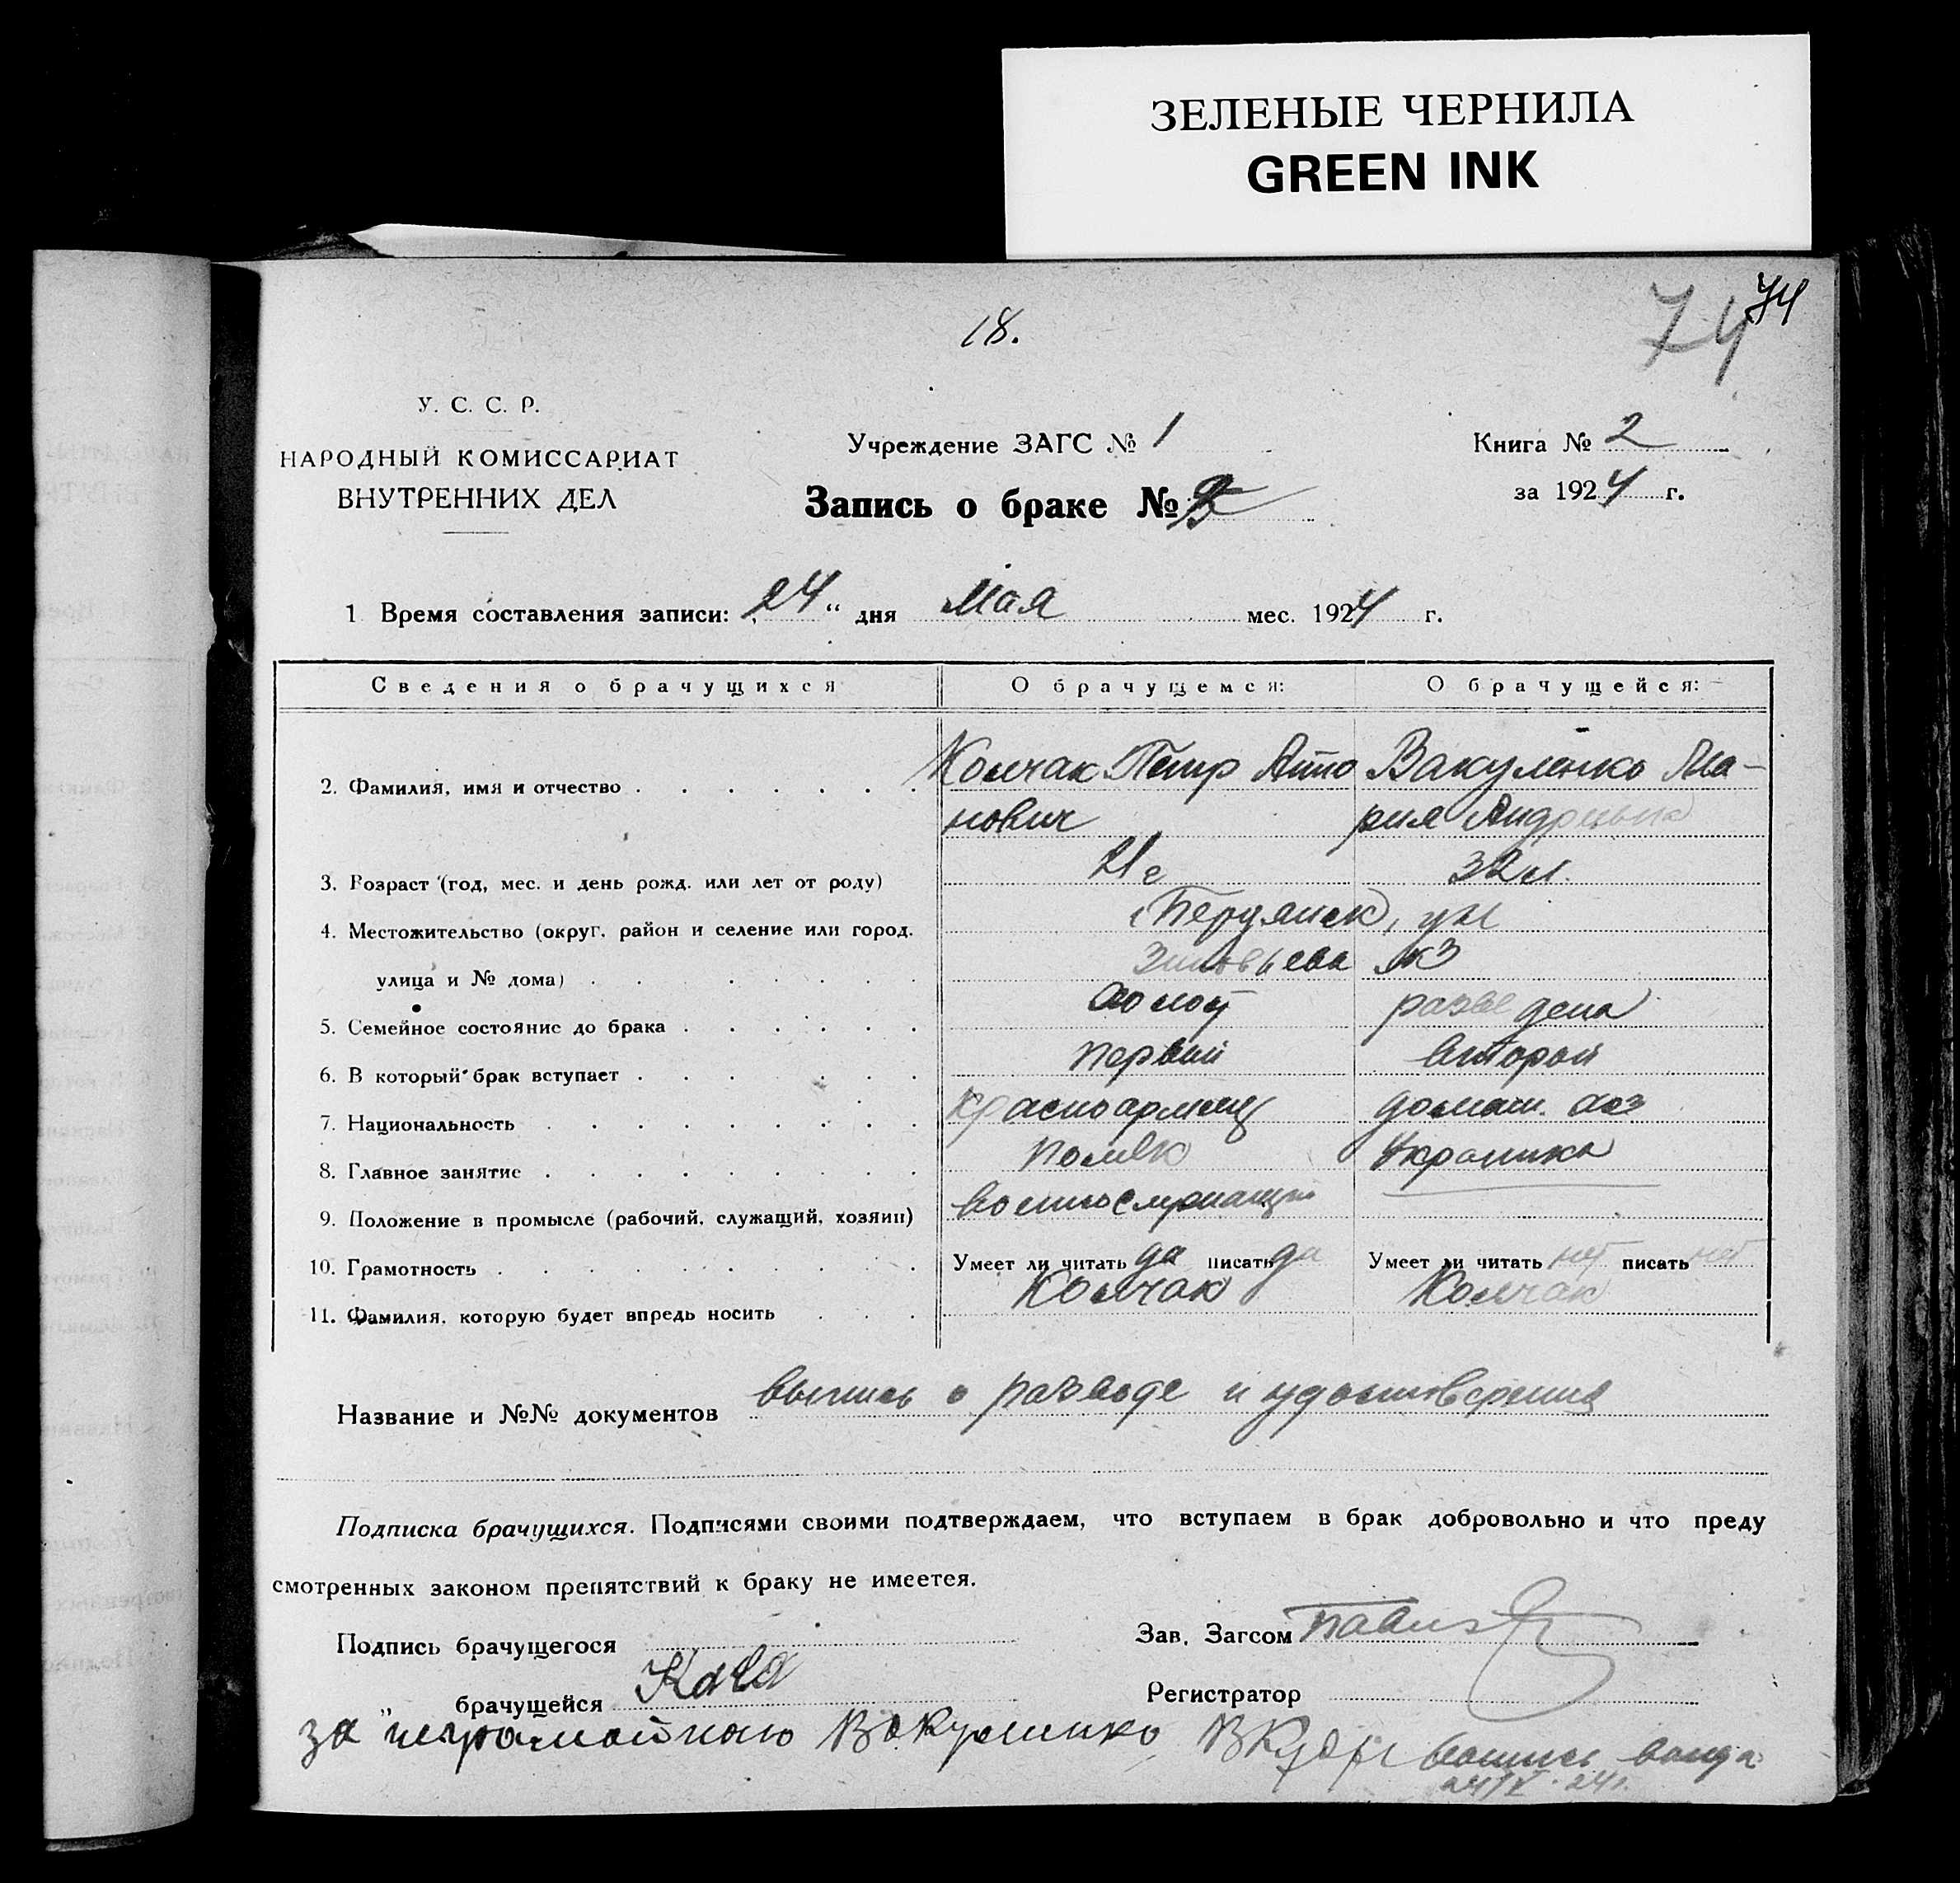 ЗЕЛЕНЫЕ ЧЕРНИЛА
GREEN INK
74 74
18.
У. С. С. Р.
НАРОДНЫЙ КОМИССАРИАТ
ВНУТРЕННИХ ДЕЛ
Учреждение ЗАГС № 1
Запись о браке №
Книга № 2
за 1924 г.
1 Время составления записи: „24“ дня Мая мес. 1924 г.
Сведения о брачущихся О брачущемся: О брачущейся:
2. Фамилия, имя и отчество Колчак Петр Анто Вакуленко Ма-
нович рия Андревна
3. Возраст (год, мес. и день рожд. или лет от роду) 21 г 32 л.
4. Местожительство (округ, район и селение или город, г Бердянск, ул
улица и № дома) Зиновьева
5. Семейное состояние до брака холост разведена
6. В который брак вступает первый второй
7. Национальность красноармеец домаш. хоз
8. Главное занятие поляк Украинка
9. Положение в промысле (рабочий, служащий, хозяин) военнослужащий
10. Грамотность Умеет ли читать да писать да Умеет ли читать нет писать нет
11. Фамилия, которую будет впредь носить Колчак Колчак
Название и №№ документов выпись о разводе и удостоверения
Подписка брачущихся. Подписями своими подтверждаем, что вступаем в брак добровольно и что преду
смотренных законом препятствий к браку не имеется.
Подпись брачущегося
Зав. Загсом
„ брачущейся
Регистратор
за неграмотною Вакуленко выпись выда
24/V 24 г.